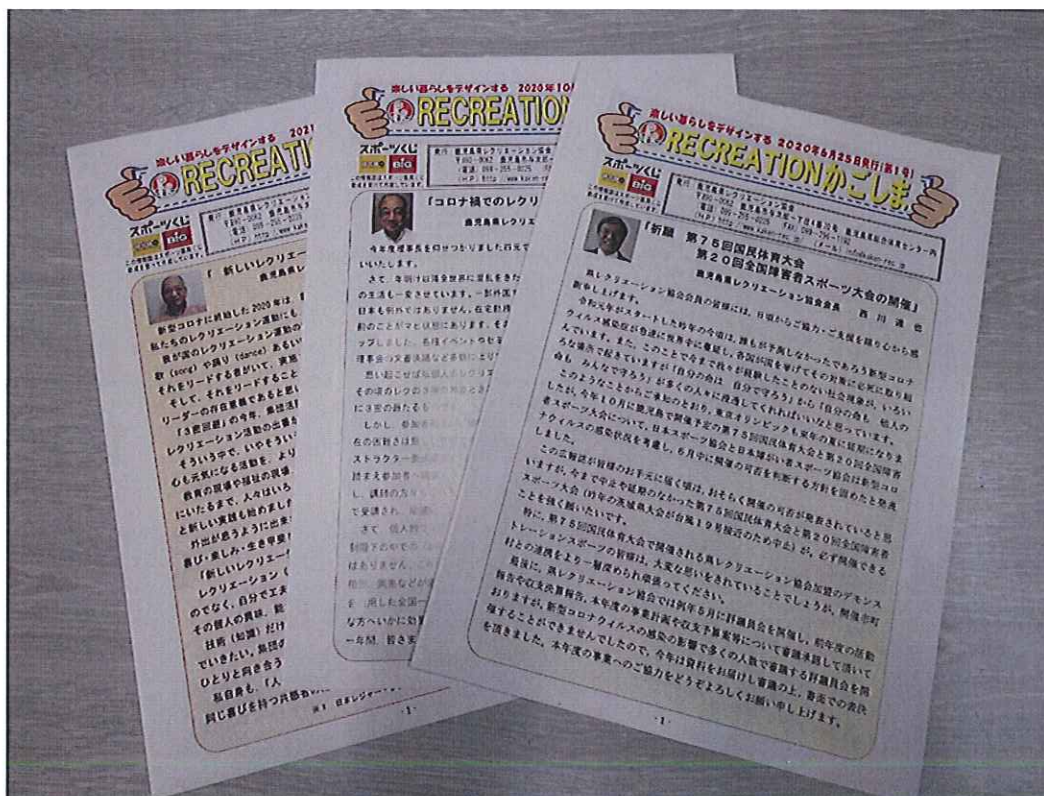 楽しい暮らしをデザインする 2021
RECREATION
スポーツくじ
BIG
発行 鹿児島県レクリエーション協会
〒890-0062 鹿児島市与次郎
電話 099-255-0225
(HP) http://www.kaken
「新しいレクリエー
鹿児島県レ
新型コロナに終始した2020年は、
私たちのレクリエーション運動にも
我が国のレクリエーション運動の
歌(song)や踊り(dance)あるい
それをリードする者がいて、実施
そして、それをリードすること
リーダーの存在意義であると思い
「3密回避」の今年、集団活
レクリエーション活動の出番が
そういう中で、いやそういう
心も元気になる活動を、より
教育の現場や福祉の現場、
にいたるまで、人々はいろ
と新しい実践も始めました
外出が思うように出来
喜び・楽しみ・生き甲斐
「新しいレクリエー
レクリエーション(
のでなく、自分で工夫
その個人の興味、能
技術(知識)だけ
でいきたい。集団の
ひとりと向き合う
私自身も、「人
同じ喜びを持つ共感者の
-1-
楽しい暮らしをデザインする 2020年10
RECREATION
スポーツくじ
BIG
発行 鹿児島県レクリエーション協会
〒890-0062 鹿児島市与次郎一
(電話) 099-255-0225
(HP) http://www.kaken
「コロナ禍でのレクリ
鹿児島県レクリエ
今年度理事長を仰せつかりました四元で
いいたします。
さて、年明け以降全世界に混乱をきた
の生活も一変させています。一部外国
日本も例外ではありません。在宅勤務
前のことがマヒ状態にあります。そ
ップしました。各種イベントやセ
理事会の文書決議など多岐に
思い起こせば
しかし、参加
在の困難さは
ストラクター
踏まえ参加者
し、講師の方
で受講され、
さて、個人
制限下の中での
はありません。
を活用した全国一
な方へいかに効
一年間、皆さま
-1-
楽しい暮らしをデザインする 2020年6月25日発行(第1号)
RECREATIONかごしま
スポーツくじ
BIG
発行 鹿児島県レクリエーション協会
〒890-0062 鹿児島市与次郎一丁目4番20号 鹿児島県総合体育センター内
電話 099-255-0225 FAX 099-296-1192
(HP) http://www.kaken-rec.jp (メール) info@kaken-rec.jp
「祈願 第75回国民体育大会
第20回全国障害者スポーツ大会の開催」
鹿児島県レクリエーション協会会長 西川 道也
県レクリエーション協会会員の皆様には、日頃からご協力・ご支援を賜り心から感
謝申し上げます。
令和元年がスタートした昨年の今頃は、誰もが予測しなかったであろう新型コロナ
ウイルス感染症が急速に世界中に蔓延し、各国が国を挙げてその対策に必死に取り組
んでいます。また、このことで今まで我々が経験したことのない社会現象が、いろい
ろな場所で起きていますが「自分の命は 自分で守ろう」から「自分の命も 他人の
命も みんなで守ろう」が多くの人々に浸透してくれればいいなと思っています。
このようなことからご承知のとおり、東京オリンピックも来年の夏に延期になりま
したが、今年10月に鹿児島で開催予定の第75回国民体育大会と第20回全国障害
者スポーツ大会について、日本スポーツ協会と日本障がい者スポーツ協会は新型コロ
ナウイルスの感染状況を考慮し、6月中に開催の可否を判断する方針を固めたと発表
しました。
この広報誌が皆様のお手元に届く頃は、おそらく開催の可否が発表されていると思
いますが、今まで中止や延期のなかった第75回国民体育大会と第20回全国障害者
スポーツ大会(昨年の茨城県大会が台風19号接近のため中止)が、必ず開催できる
ことを強く願いたいです。
特に、第75回国民体育大会で開催される県レクリエーション協会加盟のデモンス
トレーションスポーツの皆様は、大変な思いをされていることでしょうが、開催市町
村との連携をより一層深められ頑張ってください。
最後に、県レクリエーション協会では例年5月に評議員会を開催し、前年度の活動
報告や収支決算報告、本年度の事業計画や収支予算案等について審議承認して頂いて
おりますが、新型コロナウイルスの感染の影響で多くの人数で審議する評議員会を開
催することができませんでしたので、今年は資料をお届けし審議の上、書面での表決
を頂きました。本年度の事業へのご協力をどうぞよろしくお願い申し上げます。
-1-